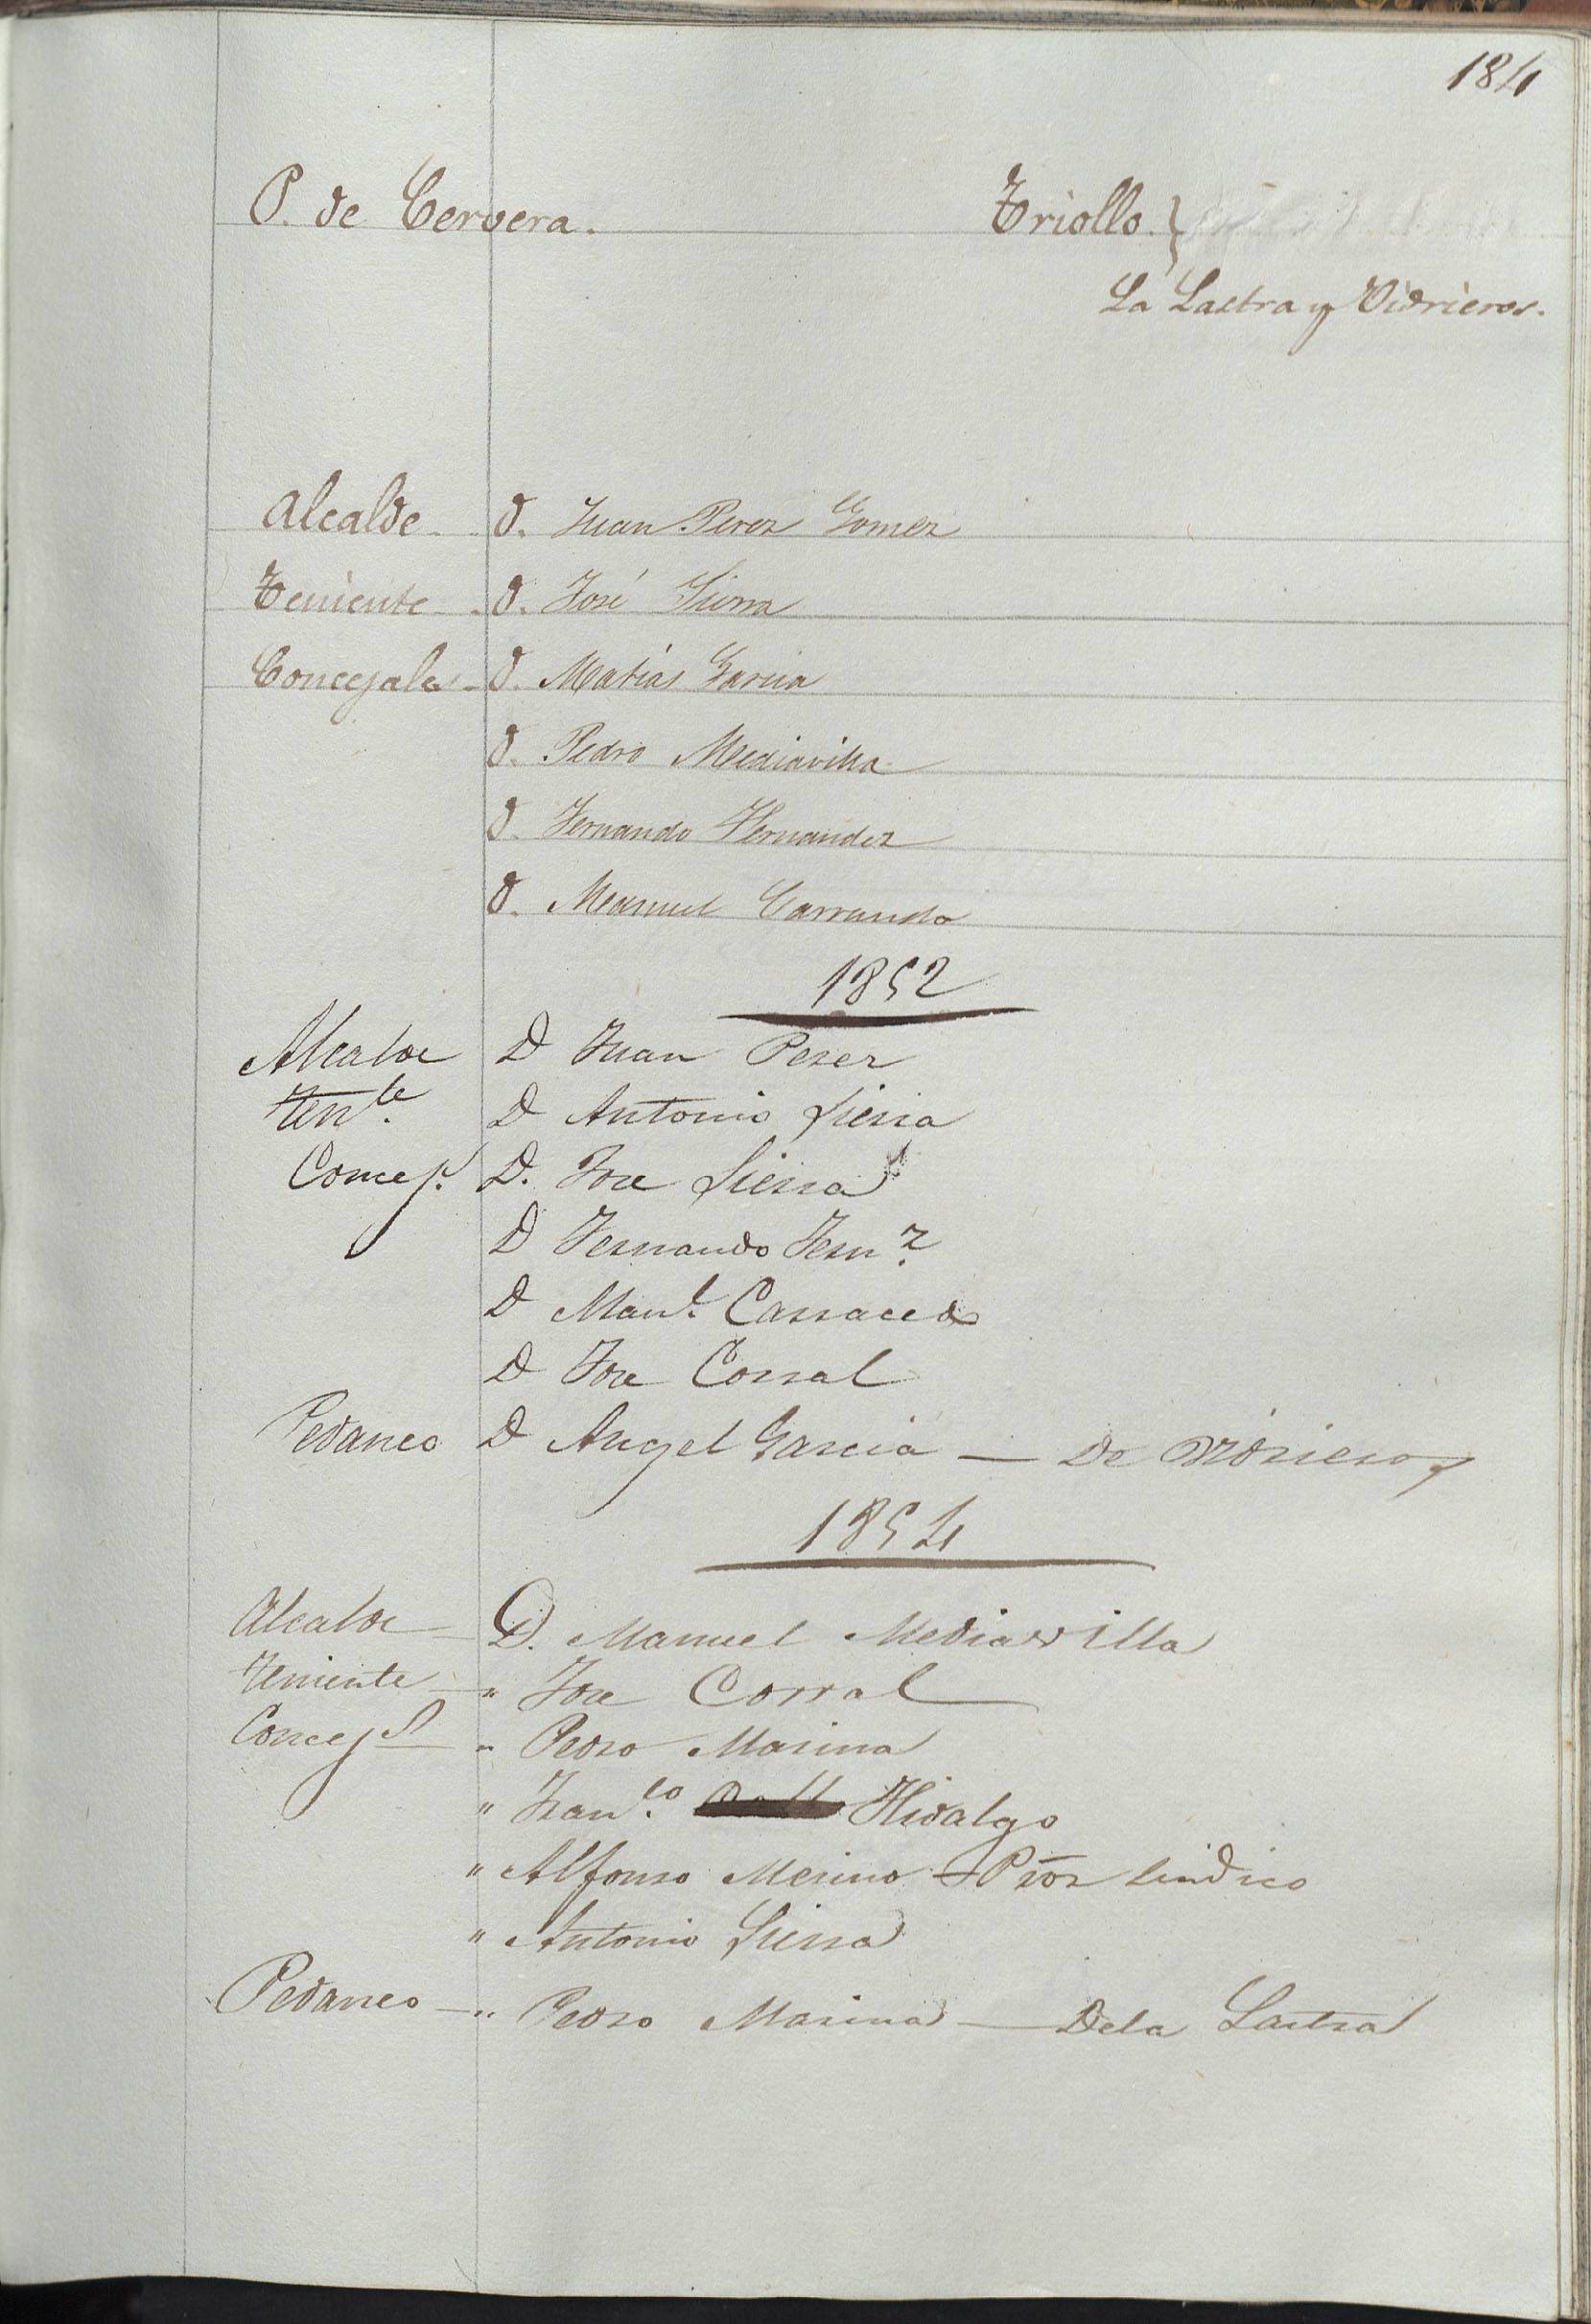 184
P. de Cervera. Triollo }
La Lastra y Vidrieros.
Alcalde D. Juan Perez Gomez
Teniente D. José Sierra
Concejales D. Matías Garcia
D. Pedro Mediavilla
D. Fernando Hernandez
D. Manuel
1852
Alcalde D Juan Perez
Ten.te D Antonio Sierra
Concej.s D. Jose Sierra
D Fernando Fern.z
D Man.l Carracedo
D Jose Corral
Pedaneo D Angel Garcia — De Vidrieros
1854
Alcalde D. Manuel Mediavilla
Teniente " Jose Corral
Concej.s " Pedro Marina
" Fran.co Hidalgo
" Alfonso Merino — Pror Sindico
" Antonio Sierra
Pedaneo — " Pedro Marina — Dela Lastra